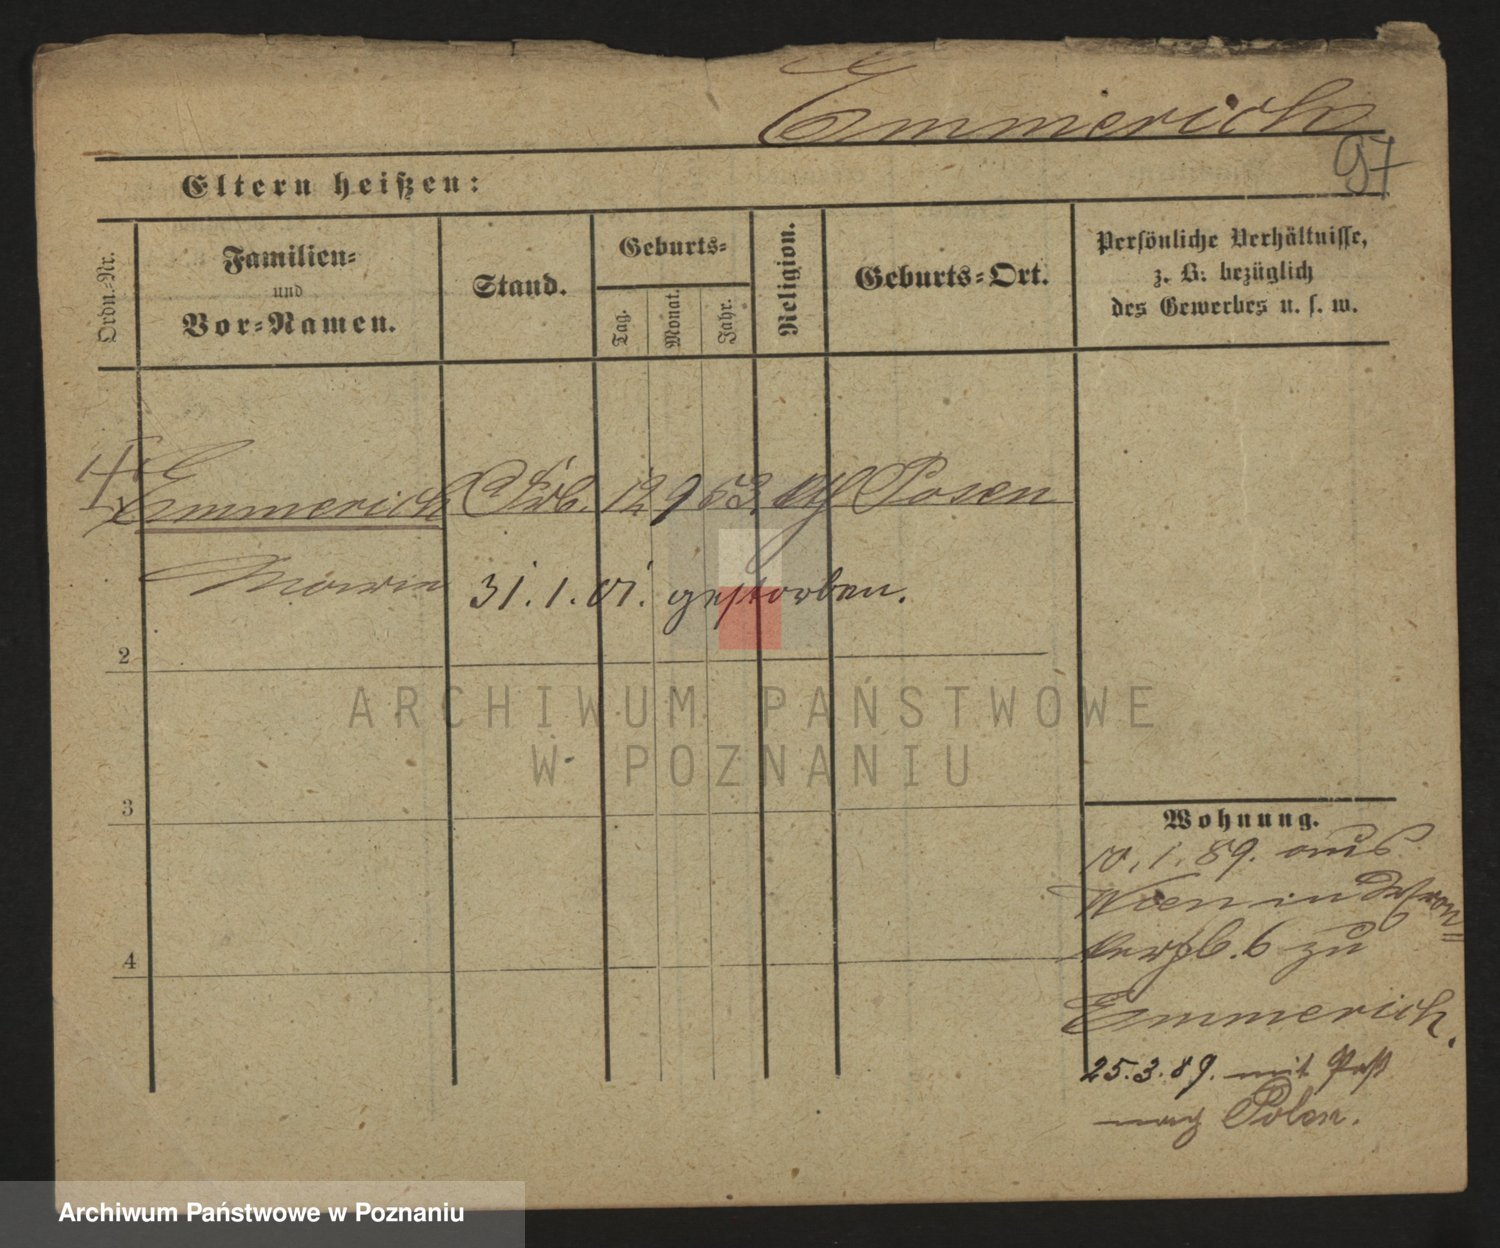 Emmerich
97
Eltern heißen:
Ordn.-Nr.
Familien-
und
Vor-Namen.
Stand.
Geburts-
Tag.
Monat.
Jahr.
Religion.
Geburts-Ort.
Persönliche Verhältnisse,
z. B: bezüglich
des Gewerbes u. s. w.
Emmerich 12 9 63 Posen
Maria 31.1.01. gestorben.
2
3
4
ARCHIWUM PAŃSTWOWE
W POZNANIU
Wohnung.
10.1.89. aus
Wien in
6 zu
Emmerich.
25.3.89. mit Paß
nach Polen.
Archiwum Państwowe w Poznaniu